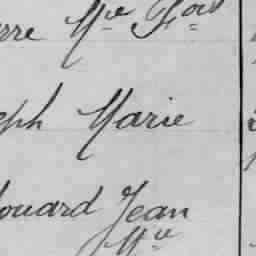 erre Mie Fois
eph Marie
ouard Jean
Mie